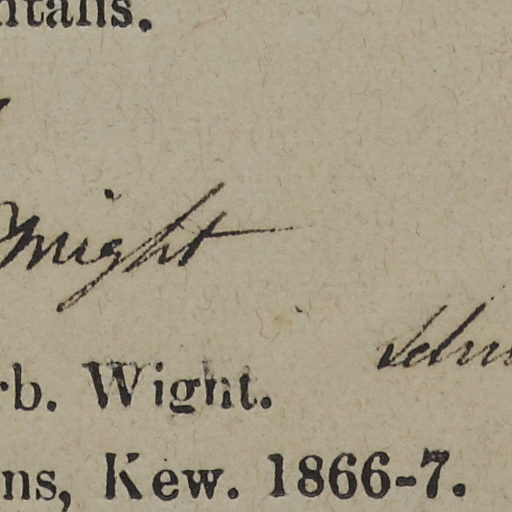 ntalis.
Wight
rb. Wight.
ns, Kew. 1866-7.